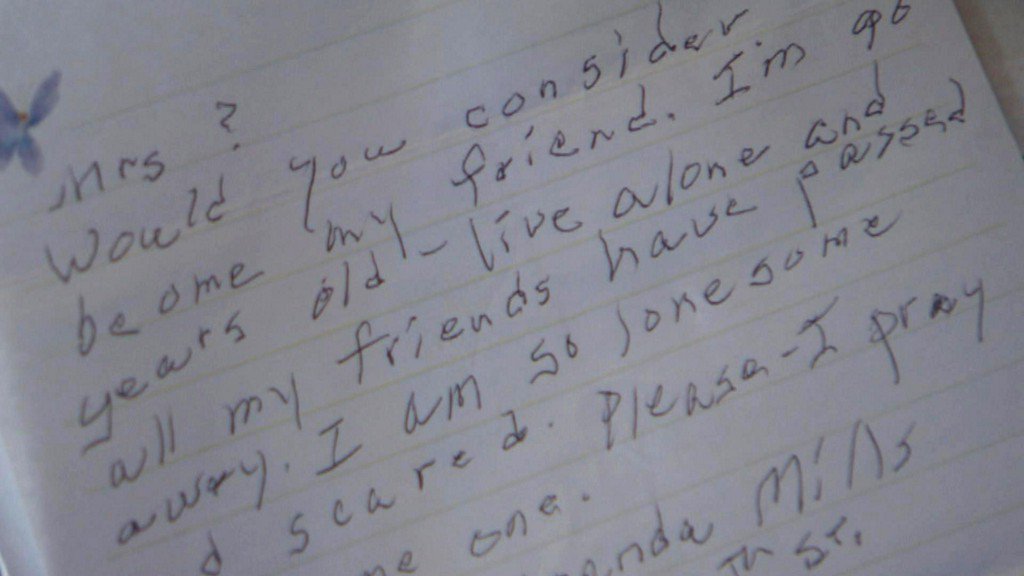 Mrs ?
Would you consider
be ome my friend. I'm 90
years old - live alone and
all my friends have passed
away. I am so lonesome
d scared. Please - I pray
me one.
anda Mills
TH ST.